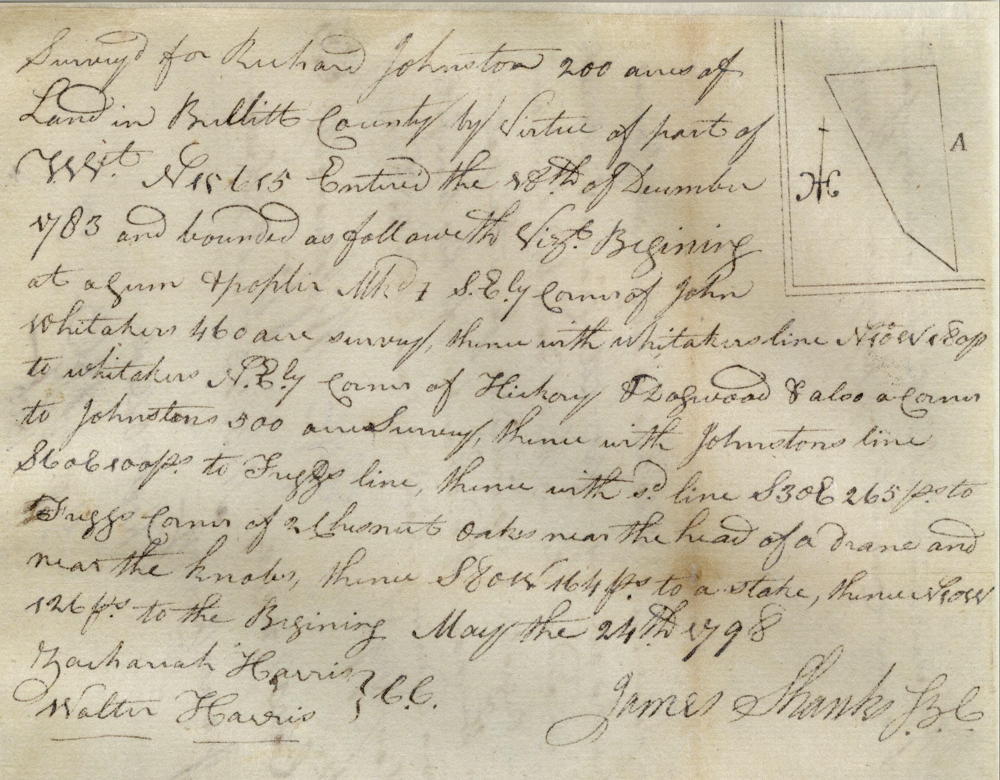 Survey'd for Richard Johnston 200 acres of
Land in Bullitt County by Virtue of part of
Wrt. N 15615 Entered the 18th of December
1783 and bounded as followeth Vizt. Begining
A
at a gum & poplir Mkd S.Ely Corner of John
Whitakers 460 acre survey, thence with whitakers line
to whitakers N.Ely Corner of Hickory & Dogwood & also a Corner
to Johnstons 500 acre Survey, thence with Johnstons line
S60E100ps. to Friggs line, thence with sd. line S30E 265ps to
Friggs Corner of 2 Chesnut Oakes near the head of a drane and
near the knobs, thence S80W 164ps to a stake, thence
126ps to the Begining May the 24th 1798
Zachariah Harris
Walter Harris } C.C.
James Shanks S.B.C